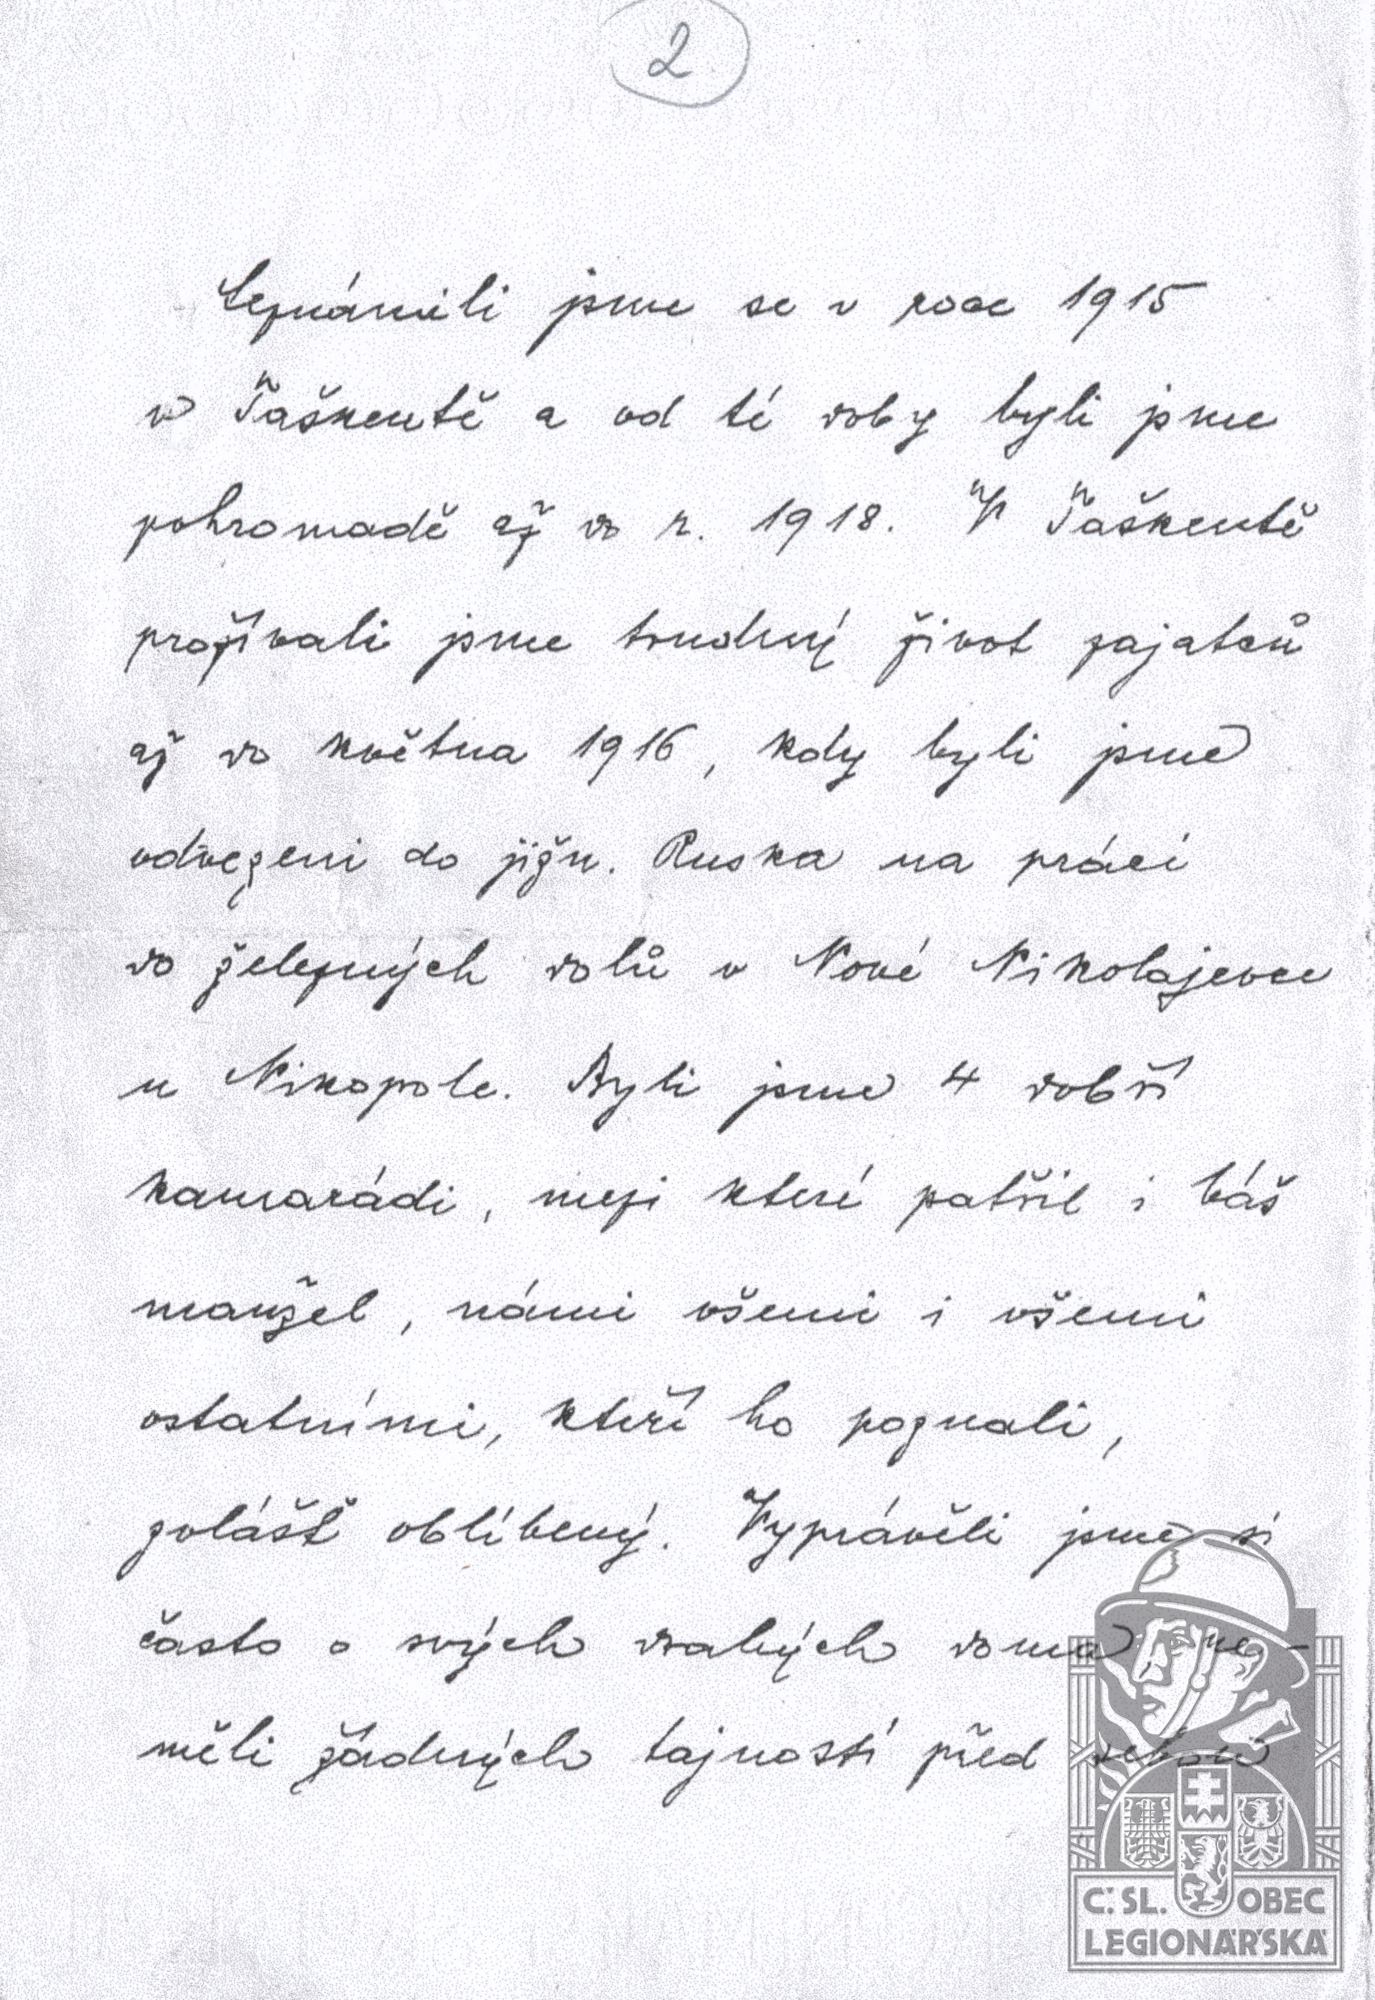 2
Seznámili jsme se v roce 1915
v Taškentě a od té doby byli jsme
pohromadě až do r. 1918. V Taškentě
prožívali jsme trudný život zajatců
až do května 1916, kdy byli jsme
odvezeni do jižn. Ruska na práci
do železných dolů v Nové Nikolajevce
u Nikopole. Byli jsme 4 dobří
kamarádi, mezi které patřil i Váš
manžel, námi všemi i všemi
ostatními, kteří ho poznali,
zvlášť oblíbený. Vyprávěli jsme si
často o svých drahých doma, ne-
měli žádných tajností před sebou
Č. SL. OBEC
LEGIONÁŘSKÁ